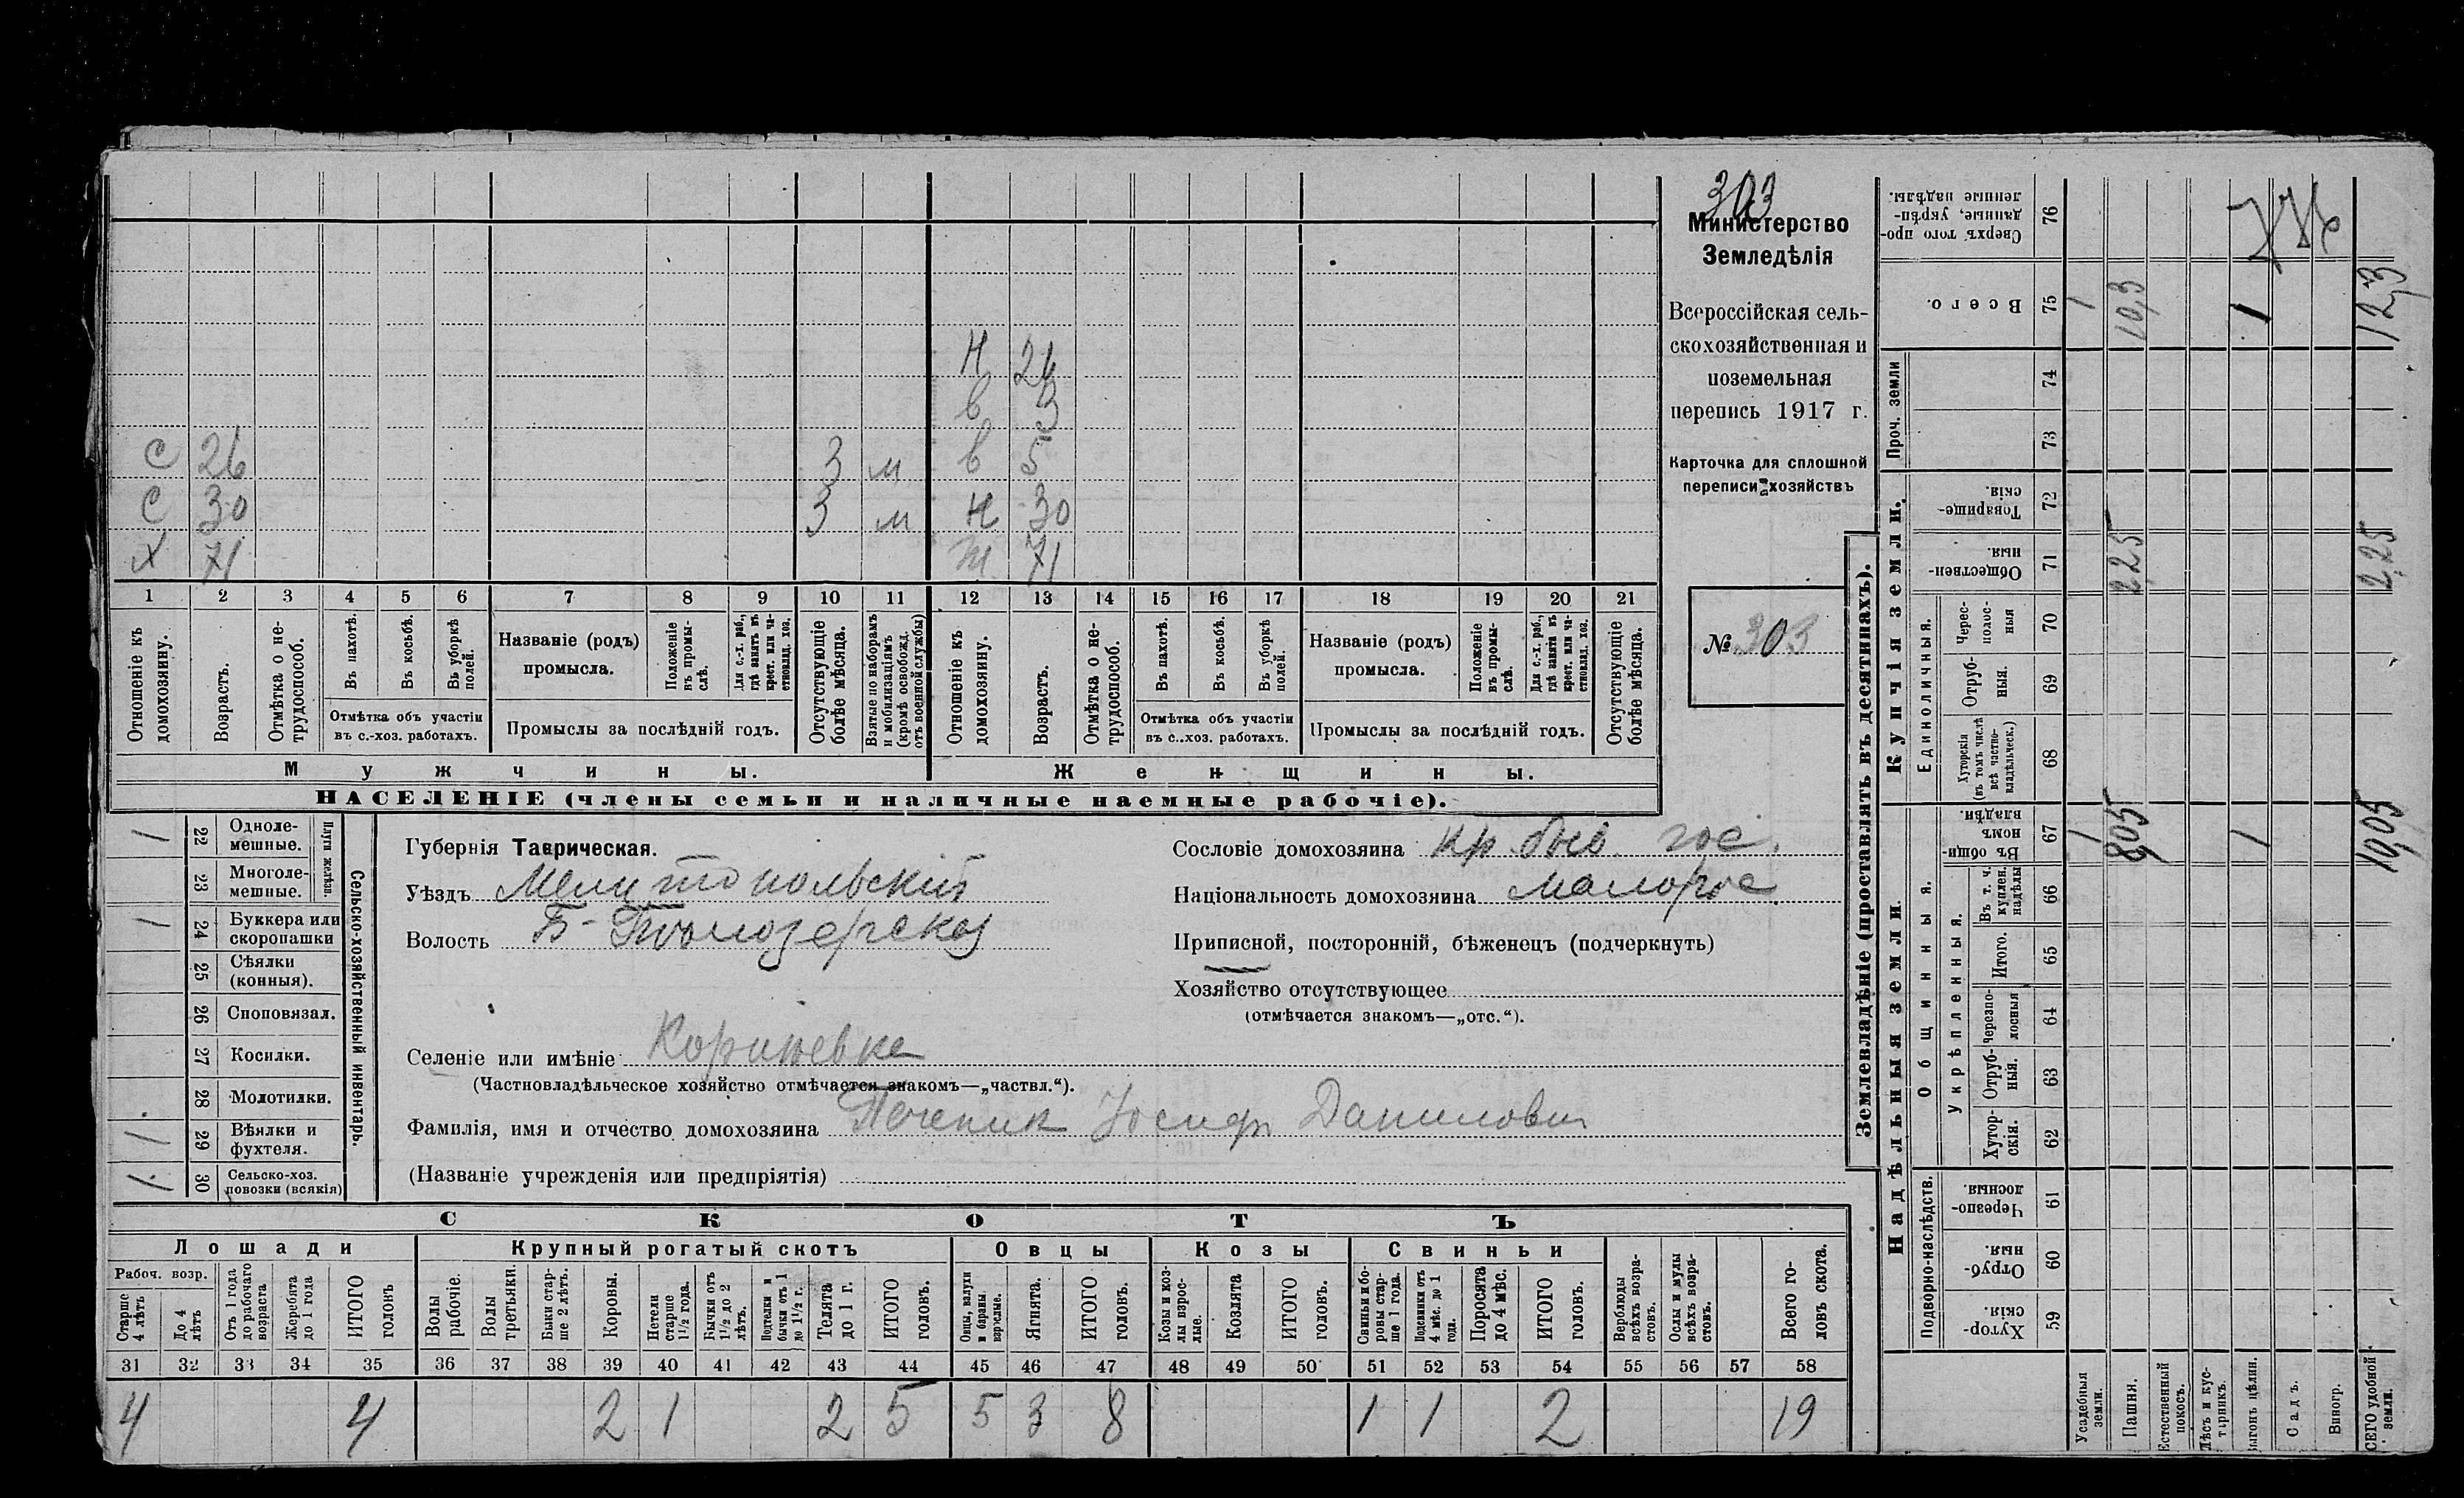 303
Министерство
Земледѣлія
Всероссійская сель-
скохозяйственная и
поземельная
перепись 1917 г.
Карточка для сплошной
переписи хозяйствъ
№ 303
Н 26
в 3
С 26 3 м в 5
С 30 3 м Н 30
Х 71 Ж 71
1 2 3 4 5 6 7 8 9 10 11 12 13 14 15 16 17 18 19 20 21
Отношеніе къ домохозяину.
Возрастъ.
Отмѣтка о не-трудоспособ.
Въ пахотѣ.
Въ косьбѣ.
Въ уборкѣ полей.
Отмѣтка объ участіи въ с.-хоз. работахъ.
Названіе (родъ) промысла.
Положеніе въ промы-слѣ.
Для с.-х. раб., гдѣ занятъ въ крест. или ча-стновлад. хоз.
Промыслы за послѣдній годъ.
Отсутствующіе болѣе мѣсяца.
Взятые по наборамъ и мобилизаціямъ (кромѣ освобожд. отъ военной службы)
Отношеніе къ домохозяину.
Возрастъ.
Отмѣтка о не-трудоспособ.
Въ пахотѣ.
Въ косьбѣ.
Въ уборкѣ полей.
Отмѣтка объ участіи въ с..хоз. работахъ.
Названіе (родъ) промысла.
Положеніе въ промы-слѣ.
Для с.-х. раб., гдѣ занята въ крест. или ча-стновлад. хоз.
Промыслы за послѣдній годъ.
Отсутствующіе болѣе мѣсяца.
Мужчины.
Женщины.
НАСЕЛЕНІЕ (члены семьи и наличные наемные рабочіе).
Сельско-хозяйственный инвентарь.
Плуги желѣзн.
1 22 Одноле-мешные.
23 Многоле-мешные.
1 24 Буккера или скоропашки
25 Сѣялки (конныя).
26 Сноповязал.
27 Косилки.
28 Молотилки.
1 29 Вѣялки и фухтеля.
1 30 Сельско-хоз. повозки (всякія)
Губернія Таврическая.
Уѣздъ Мелитопольскій
Волость
Селеніе или имѣніе
(Частновладѣльческое хозяйство отмѣчается знакомъ—„частвл.“).
Фамилія, имя и отчество домохозяина Печеник Іосиф Данилович
(Названіе учрежденія или предпріятія)
Сословіе домохозяина кр. быв. гос.
Національность домохозяина малорос.
Приписной, посторонній, бѣженецъ (подчеркнуть)
Хозяйство отсутствующее
(отмѣчается знакомъ—„отс.“).
СКОТЪ
Лошади
Крупный рогатый скотъ
Овцы
Козы
Свиньи
Рабоч. возр.
Старше 4 лѣтъ
До 4 лѣтъ
Отъ 1 года до рабочаго возраста
Жеребята до 1 года
ИТОГО головъ
Волы рабочіе.
Волы третьяки.
Быки стар-ше 2 лѣтъ.
Коровы.
Нетели старше 1½ года.
Бычки отъ 1½ до 2 лѣтъ.
Подтелки и бычки отъ 1 до 1½ г.
Телята до 1 г.
ИТОГО головъ.
Овцы, валухи и бараны взрослые.
Ягнята.
ИТОГО головъ.
Козы и коз-лы взрос-лые.
Козлята
ИТОГО головъ.
Свиньи бо-ровы стар-ше 1 года.
Подсвинки отъ 4 мѣс. до 1 года.
Поросята до 4 мѣс.
ИТОГО головъ.
Верблюды всѣхъ возра-стовъ.
Ослы и мулы всѣхъ возра-стовъ.
Всего го-ловъ скота.
31 32 33 34 35 36 37 38 39 40 41 42 43 44 45 46 47 48 49 50 51 52 53 54 55 56 57 58
4 4 2 1 2 5 5 3 8 1 1 2 19
Землевладѣніе (проставлять въ десятинахъ).
Надѣльныя земли
Купчія земли.
Проч. земли
Подворно-наслѣдств.
Общинныя.
Укрѣпленныя.
Единоличныя.
Сверхъ того про-данные, укрѣп-ленные надѣлы. 76
Всего. 75 1 10,3 1 12,3
74
73
Товарище-скія. 72
Обществен-ныя. 71 2,25 2,25
Черес-полос-ныя 70
Отруб-ныя. 69
Хуторскія (въ томъ числѣ всѣ частно-владѣльческ.) 68
Въ общин-номъ владѣн. 67 1 8,05 1 10,05
Въ т. ч. куплен. надѣлы 66
Итого. 65
Черезпо-лосныя 64
Отруб-ныя. 63
Хутор-скія. 62
Черезпо-лосныя. 61
Отруб-ныя. 60
Хутор-скія. 59
Усадебныя земли.
Пашня.
Естественный покосъ.
Лѣсъ и кус-тарникъ.
Выгонъ цѣлин.
Садъ.
Виногр.
ВСЕГО удобной земли.